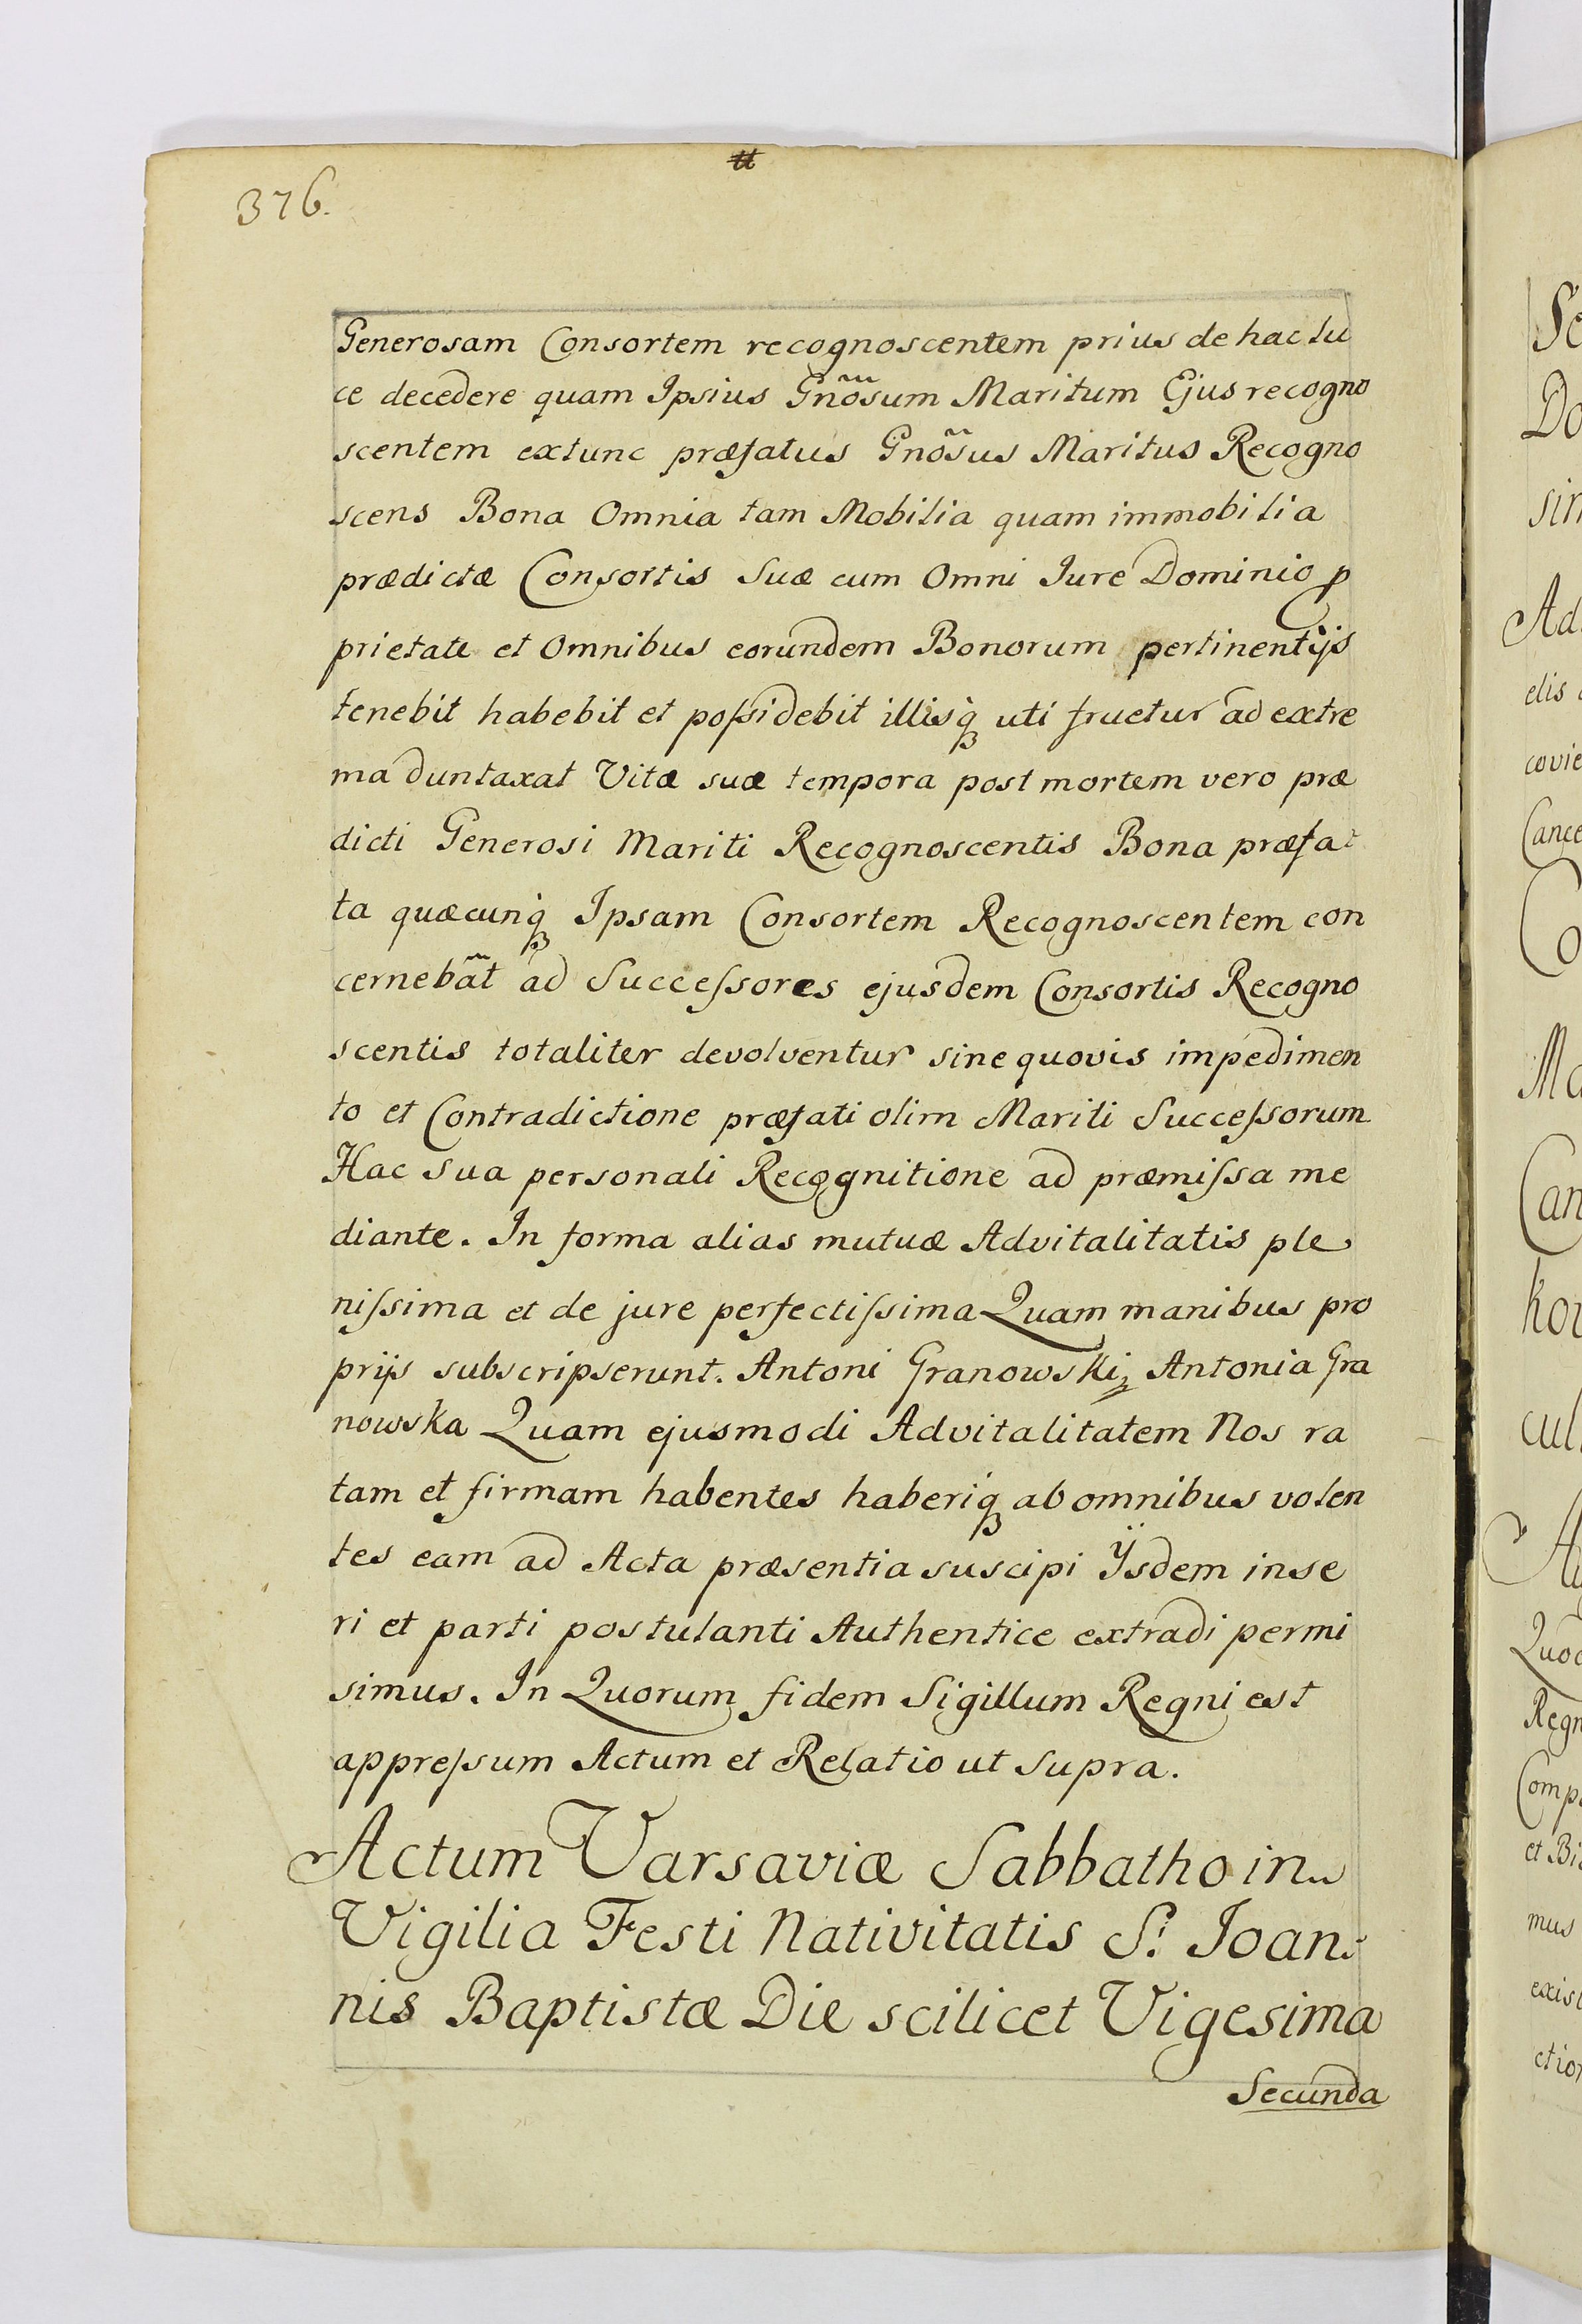 376.
Generosam Consortem recognoscentem prius de hac lu
ce decedere quam Ipsius Gnõsum Maritum Ejus recogno
scentem extunc præfatus Gnõsus Maritus Recogno
scens Bona Omnia tam Mobilia quam immobilia
prædictæ Consortis Suæ cum Omni Iure Dominio ꝓ
prietate et Omnibus eorundem Bonorum pertinentijs
tenebit habebit et poſsidebit illisqꝫ uti fruetur ad extre
ma duntaxat Vitæ suæ tempora post mortem vero præ
dicti Generosi Mariti Recognoscentis Bona præfa
ta quæcunqꝫ Ipsam Consortem Recognoscentem con
cernebãt ad Succeſsores ejusdem Consortis Recogno
scentis totaliter devolventur sine quovis impedimen
to et Contradictione præfati olim Mariti Succeſsorum
Hac sua personali Recognitione ad præmiſsa me
diante. In forma alias mutuæ Advitalitatis ple
niſsima et de jure perfectiſsima Quam manibus pro
prijs subscripserunt. Antoni Granowski, Antonia Gra
nowska Quam ejusmodi Advitalitatem Nos ra
tam et firmam habentes haberiqꝫ ab omnibus volen
tes eam ad Acta præsentia suscipi Ÿsdem inse
ri et parti postulanti Authentice extradi permi
simus. In Quorum fidem Sigillum Regni est
appreſsum Actum et Relatio ut Supra.
Actum Varsaviæ Sabbatho in
Vigilia Festi Nativitatis S. Ioan
nis Baptistæ Die scilicet Vigesima
Secunda